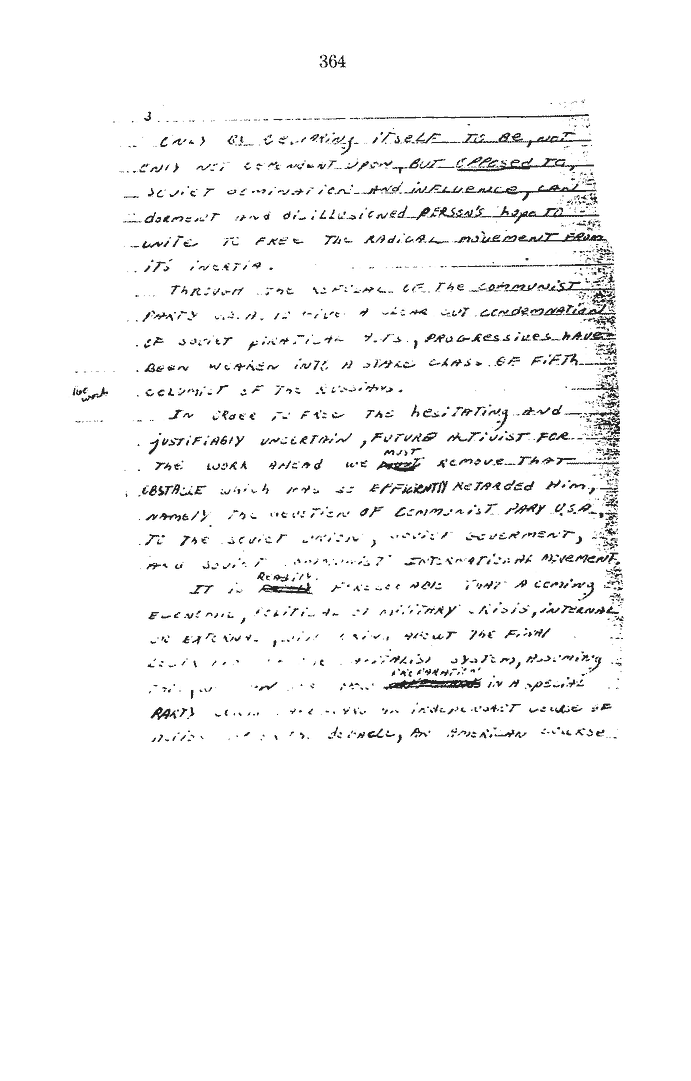 364
3
ONLY BY DECLARING ITSELF TO BE, NOT
ONLY NOT DEPENDENT UPON, BUT OPPOSED TO,
SOVIET DOMINATION AND INFLUENCE, CAN
dORMENT AND disILLUSIONED PERSON'S hope TO
UNITE TO FREE THE RADICAL MOVEMENT FROM
ITS INERTIA.
THROUGH THE REFUSAL OF THE COMMUNIST
PARTY U.S.A. TO GIVE A CLEAR CUT CONDEMNATION
OF SOVIET PIRATICAL ACTS, PROGRESSIVES HAVE
BEEN WEAKEN INTO A STALE CLASS OF FIFTH
COLUMIST OF THE RUSSIANS.
IN ORDER TO FREE THE hesITATING AND
JUSTIFIABLY UNCERTAIN, FUTURE ACTIVIST FOR
THE WORK AHEAD WE MUST REMOVE THAT
OBSTACLE which HAS SO EFFICIENTLY RETARDED HIM,
NAMELY THE DEVOTION OF COMMUNIST PARY U.S.A.,
TO THE SOVIET UNION, SOVIET GOVERMENT,
AND SOVIET COMMUNIST INTERNATIONAL MOVEMENT.
IT IS READILY FORSEEABLE THAT A COMING
ECONOMIC, POLITICAL OR MILITARY CRISIS, INTERNAL
OR EXTERNAL, WILL BRING ABOUT THE FINAL
THE CAPITALIST SYSTEM, ASSUMING
PREPARATION IN A SPECIAL
PARTY AN INDEPENDANT COURSE OF
AN AMERICAN COURSE